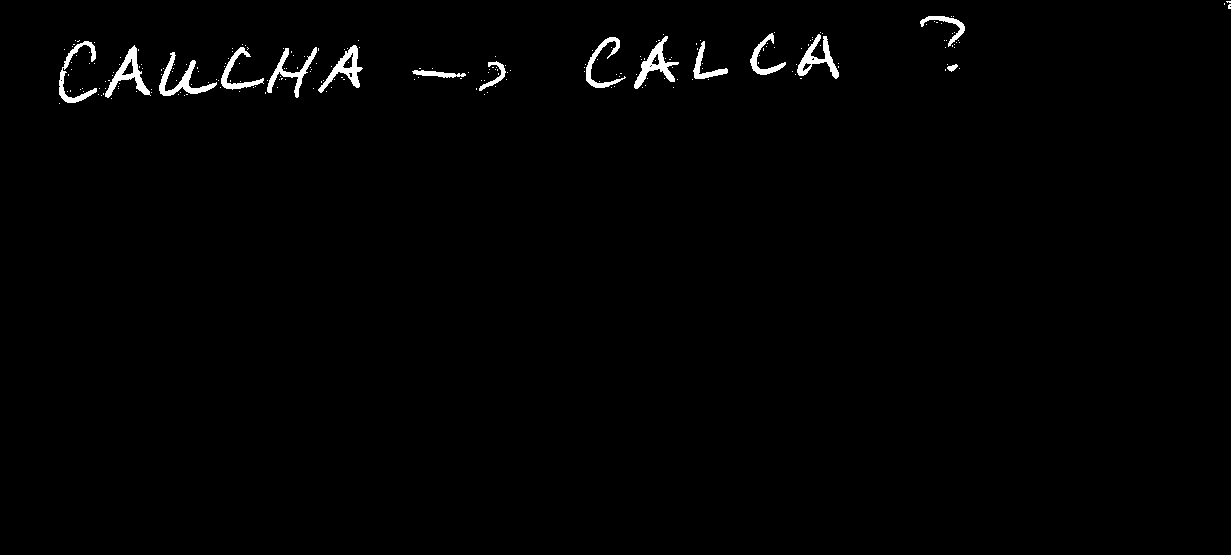 CAUCHA -> CALCA ?